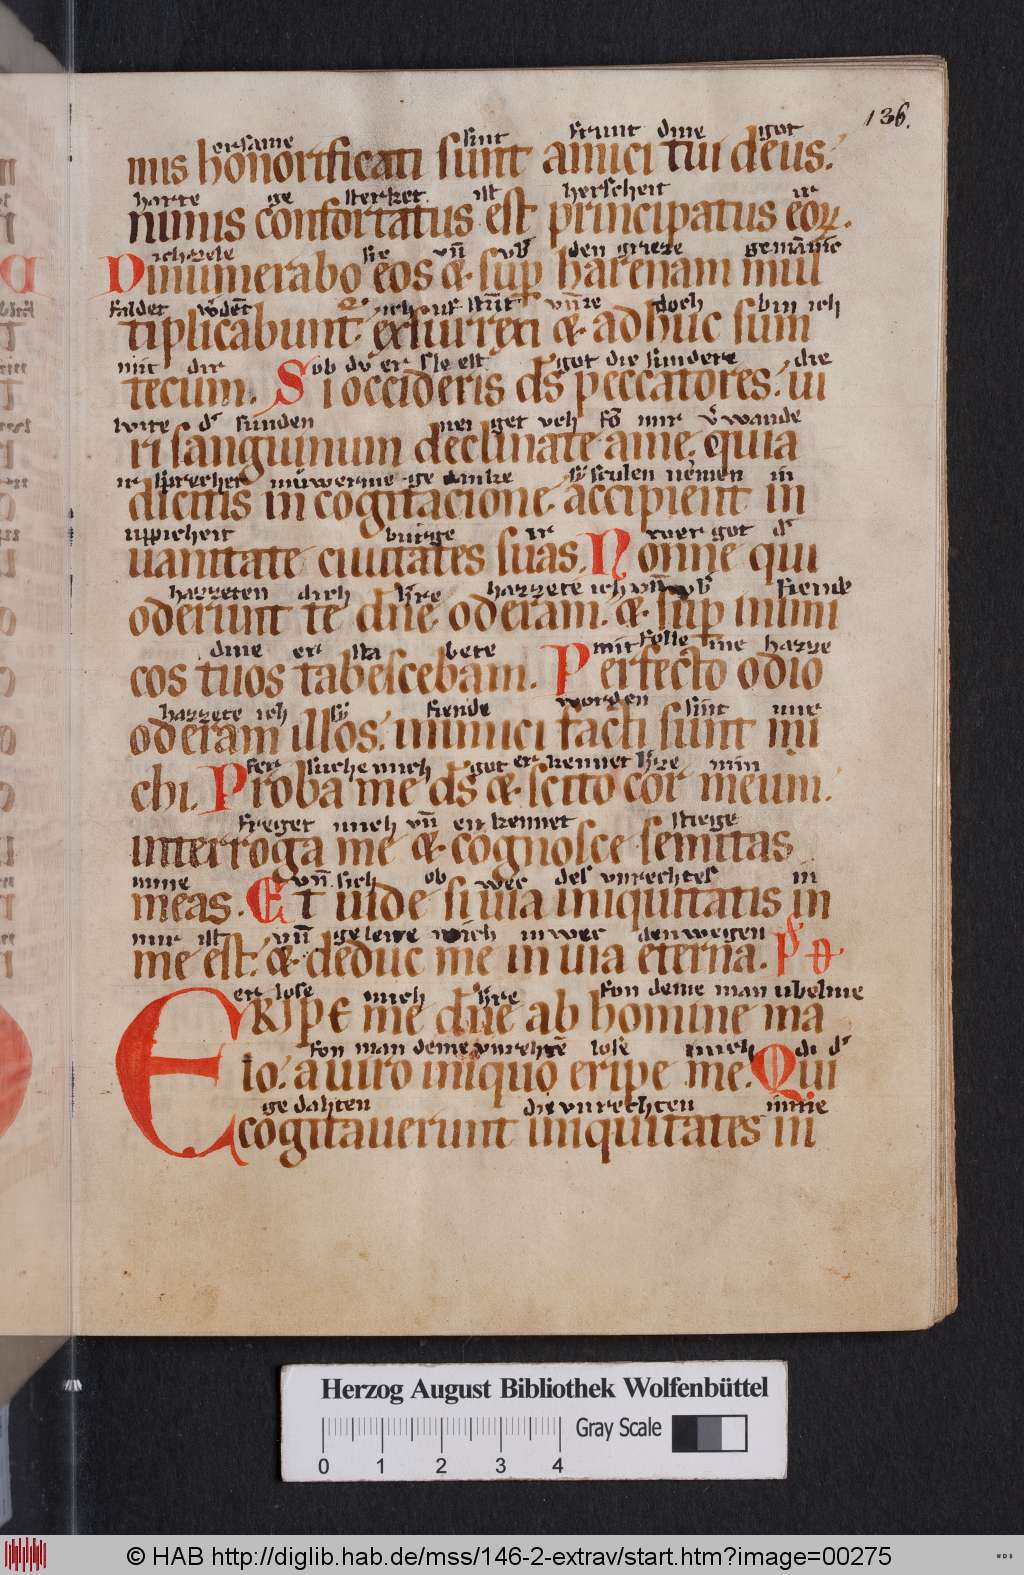 136.
ersame sint frunt dine got
mis honorificati sunt amici tui deus.
harte ge sterket ist herscheit ir
nimis confortatus est principatus eoꝝ.
ich zele sie vn̄ den grieze
Dinumerabo eos & sup̄ harenam mul
ich bin ich doch
tiplicabunt᷑ exsurrexi & adhuc sum
mit dir ob dv er sle est got die sundere die
tecum. Si occideris ds̄ peccatores. ui
sunden get mir
ri sanguinum declinate a me. quia
ir sprechet ge danke sculen nemen in
dicitis in cogitacione accipient in
uppicheit burge ir got
uanitate ciuitates suas. Nonne qui
hazzeten dich hazzete ich fiende
oderunt te dn̄e oderam. & sup̄ inimi
dine er sta bete mit folle me hazze
cos tuos tabescebam. Perfecto odio
hazzete ich fiende worden sint mir
oderam illos. inimici facti sunt mi
suche mich got er kennet min
chi. Proba me ds̄ & scito cor meum.
freget mich vn̄ er kennet stiege
interroga me & cognosce semitas
mine vn̄ sich ob wec des vnrechtes in
meas. Et uide si uia iniquitatis in
mir ist vn̄ geleite mich in wec den weigen
me est. & deduc me in uia eterna. ps̄
er lose mich fon deme man ubelme
ERIPE me dn̄e ab homine ma
fon man deme lose mich di
lo. a uiro iniquo eripe me. Qui
ge dahten die vnrechten
cogitauerunt iniquitates in
Herzog August Bibliothek Wolfenbüttel
Gray Scale
0 1 2 3 4
© HAB http://diglib.hab.de/mss/146-2-extrav/start.htm?image=00275